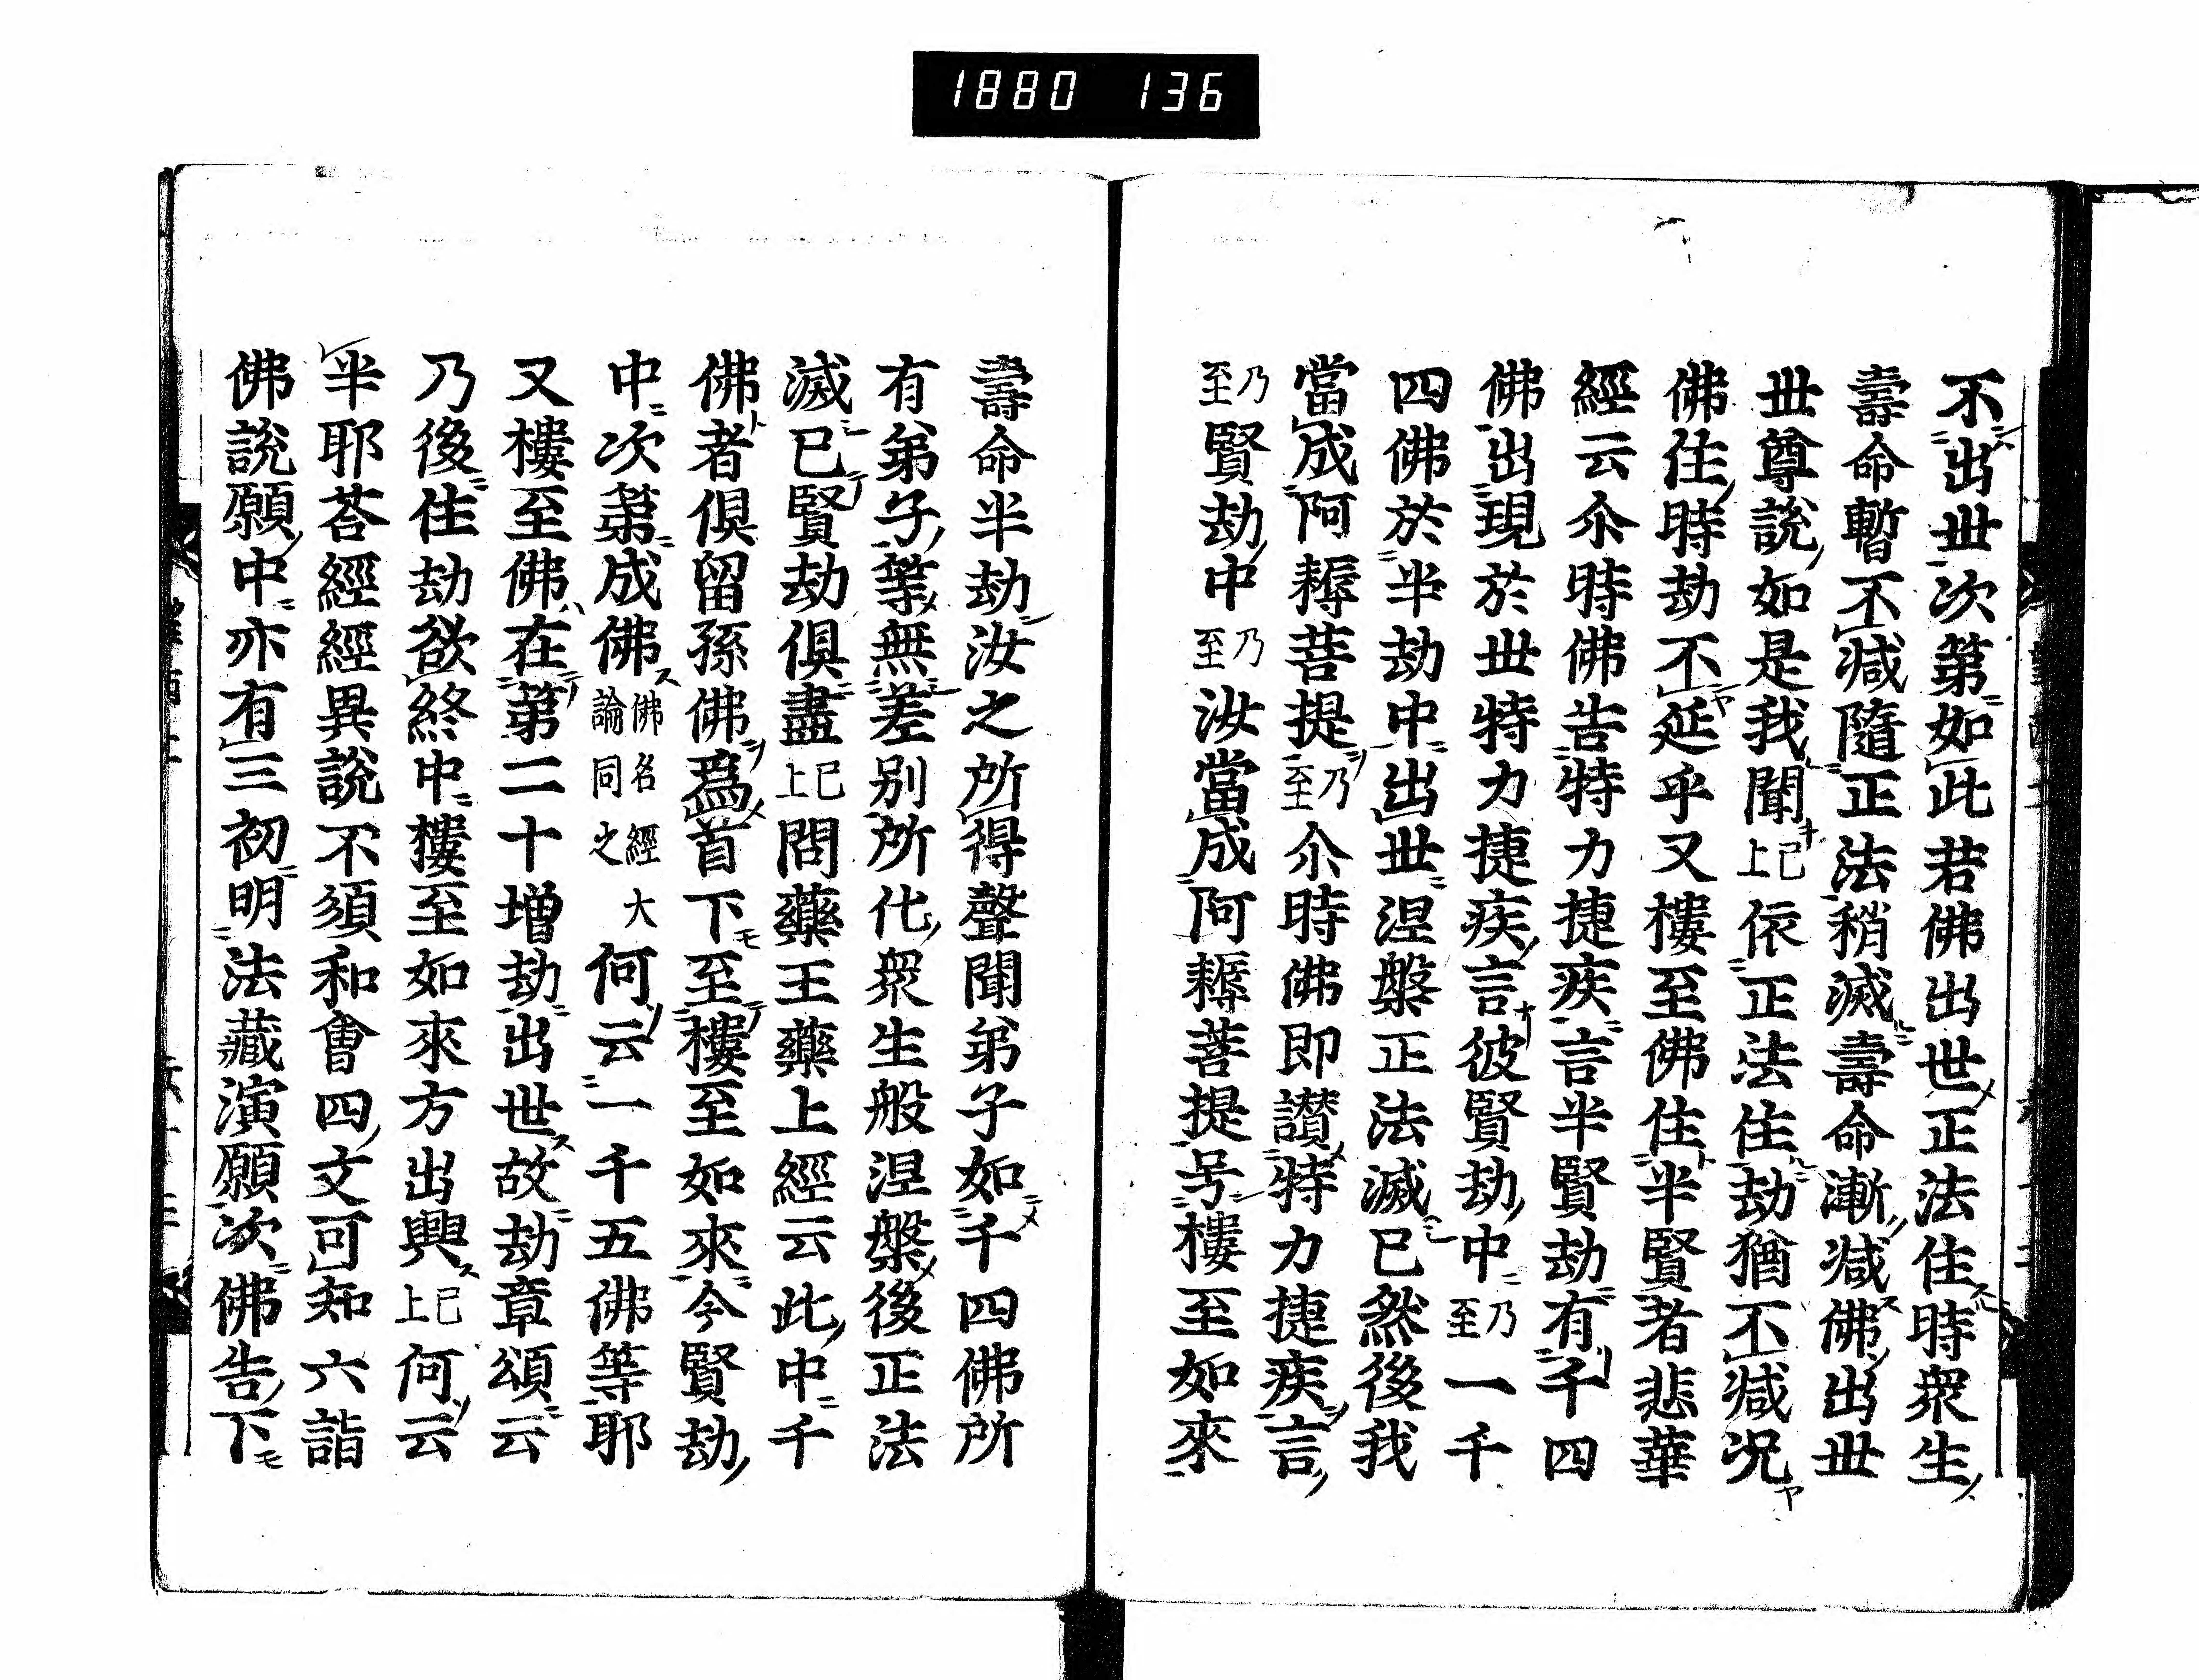 1880 136
不出丗次第如此若佛出世正法住時衆生
壽命暫不減隨正法稍滅壽命漸減佛出丗
丗尊說如是我聞已上依正法住劫猶不減况
佛住時劫不延乎又樓至佛住半賢者悲華
經云尒時佛告特力捷疾言半賢劫有千四
佛出現於丗特力捷疾言彼賢劫中乃至一千
四佛於半劫中出丗涅槃正法滅已然後我
當成阿耨菩提乃至尒時佛即讃特力捷疾言
乃至賢劫中乃至汝當成阿耨菩提号樓至如來
壽命半劫汝之所得聲聞弟子如千四佛所
有弟子等無差別所化衆生般涅槃後正法
滅已賢劫俱盡已上問藥王藥上經云此中千
佛者俱留孫佛爲首下至樓至如來今賢劫
中次第成佛佛名經大論同之何云一千五佛等耶
又樓至佛在第二十增劫出世故劫章頌云
乃後住劫欲終中樓至如來方出興已上何云
半耶荅經經異說不須和會四文可知六詣
佛說願中亦有三初明法藏演願次佛告下